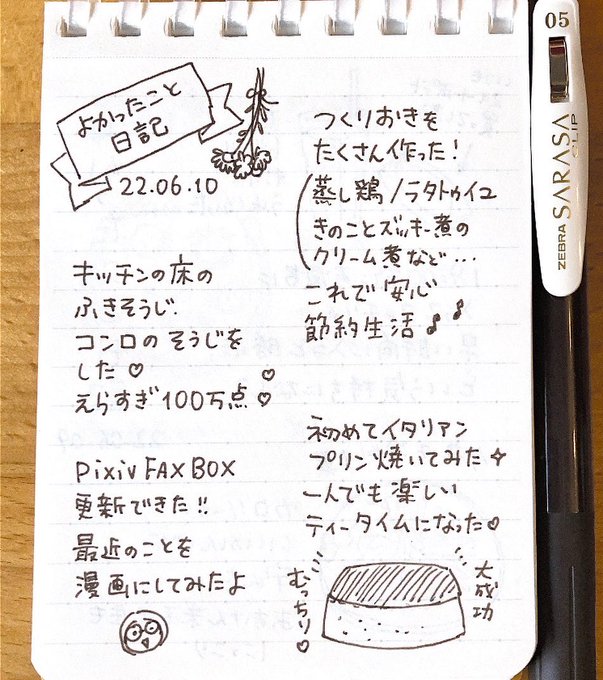 よかったこと
日記
22.06.10
キッチンの床の
ふきそうじ.
コンロのそうじを
した♡
えらすぎ100万点♡
pixiv FAX BOX
更新できた!!
最近のことを
漫画にしてみたよ
つくりおきを
たくさん作った!
(蒸し鶏/ラタトゥイユ
きのことズッキー煮の
クリーム煮など…
これで安心
節約生活♪♪
初めてイタリアン
プリン焼いてみた✧
一人でも楽しい
ティータイムになった♡
むっちり♡
大成功
05
ZEBRA SARASA CLIP